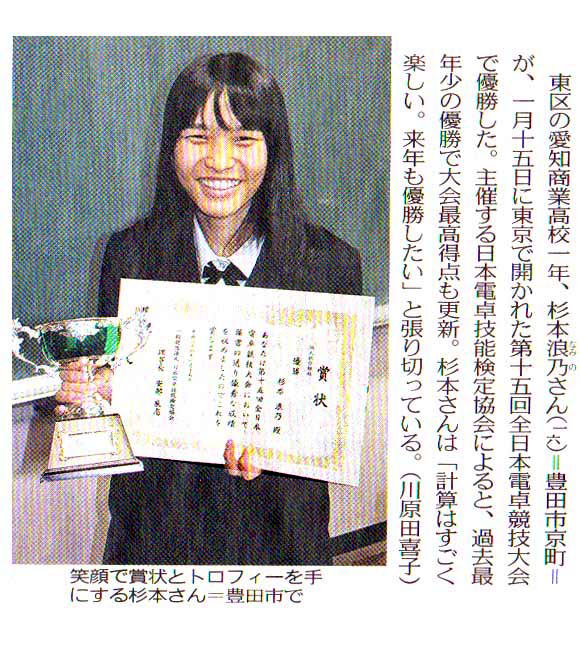 東区の愛知商業高校一年、杉本浪乃さん(一六)=豊田市京町=
なみの
が、一月十五日に東京で開かれた第十五回全日本電卓競技大会
で優勝した。主催する日本電卓技能検定協会によると、過去最
年少の優勝で大会最高得点も更新。杉本さんは「計算はすごく
楽しい。来年も優勝したい」と張り切っている。(川原田喜子)
賞状
優勝
杉本浪乃殿
あなたは第十五回全日本
電卓競技大会において
頭書の通り優秀な成績
を収めましたのでこれを
賞します
理事長
笑顔で賞状とトロフィーを手
にする杉本さん=豊田市で